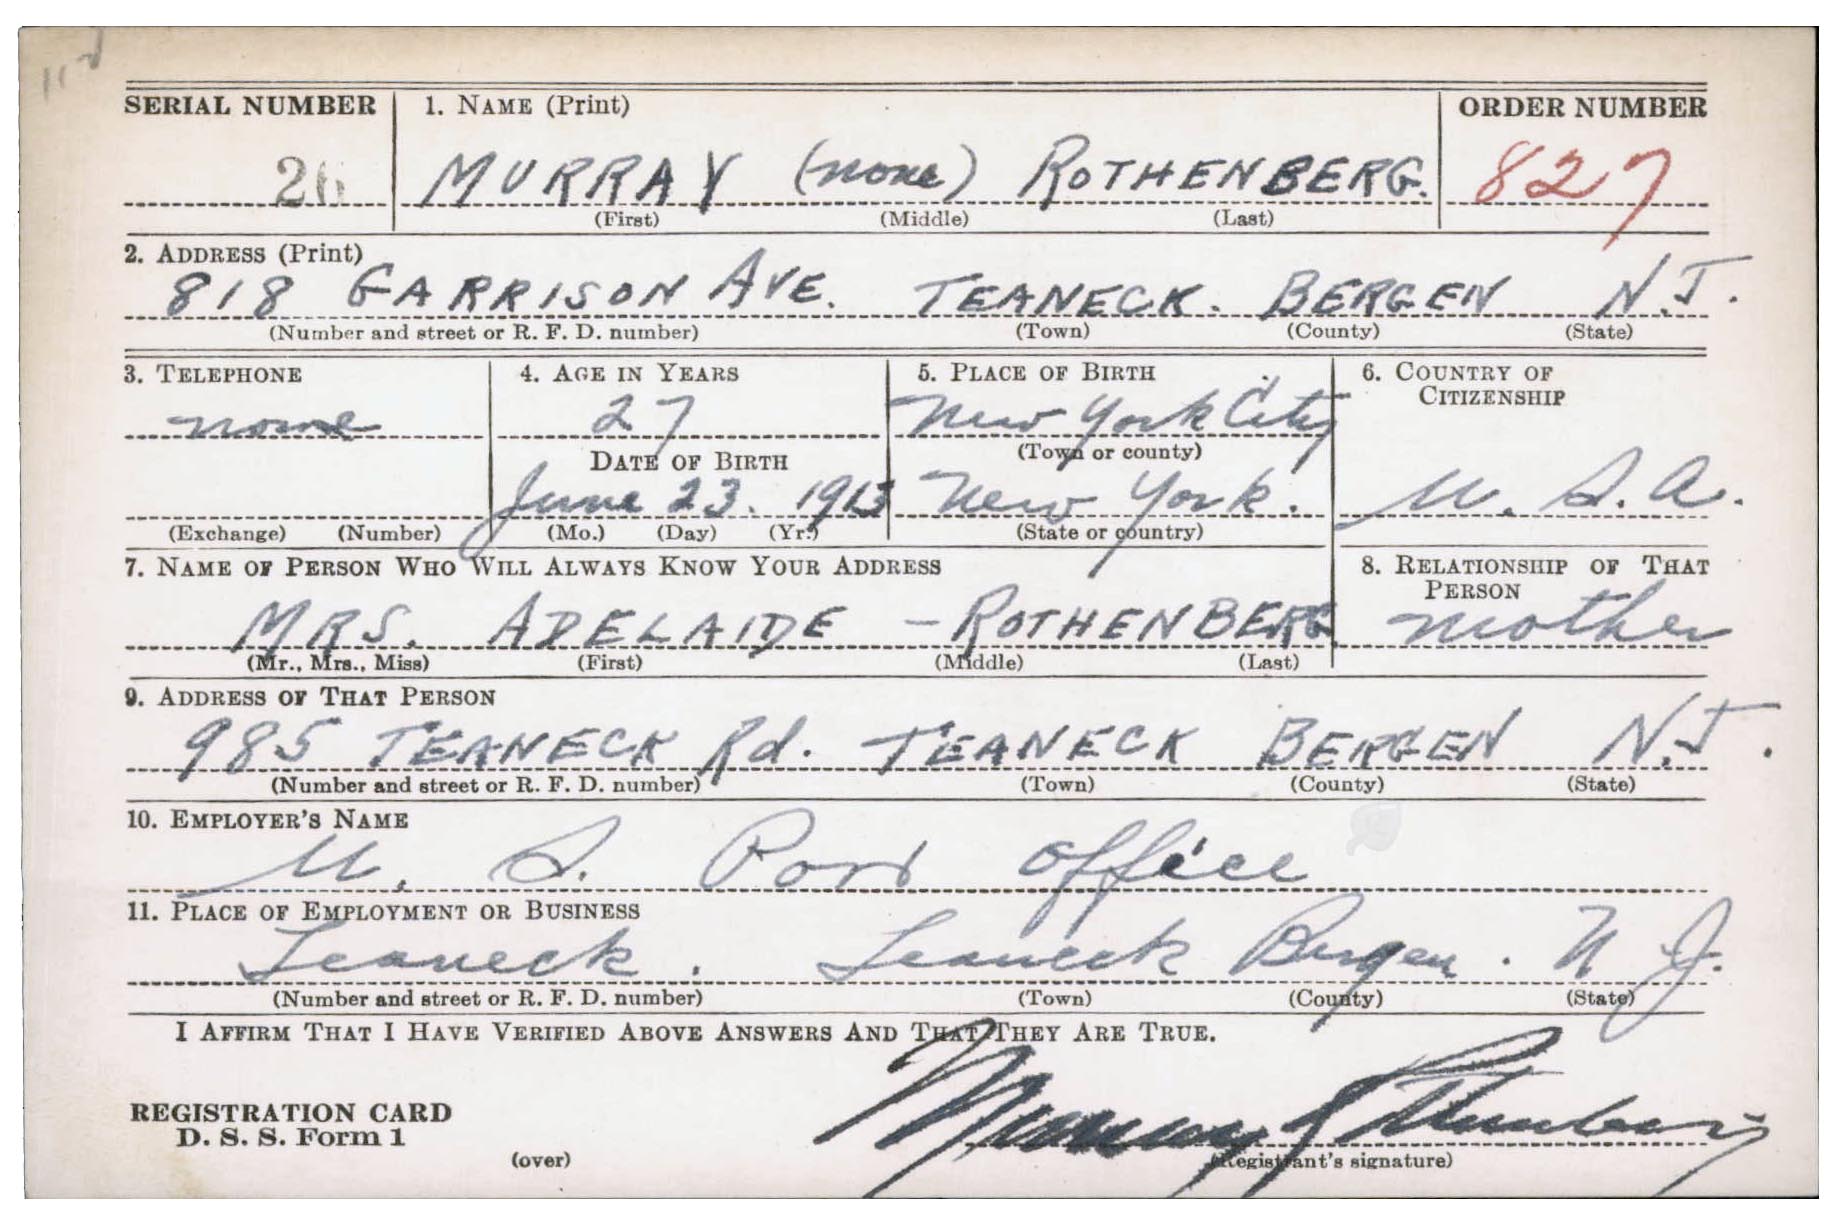 SERIAL NUMBER 1. NAME (Print) ORDER NUMBER
26 MURRAY (none) ROTHENBERG. 827
(First) (Middle) (Last)
2. ADDRESS (Print)
818 GARRISON AVE. TEANECK. BERGEN N.J.
(Number and street or R. F. D. number) (Town) (County) (State)
3. TELEPHONE 4. AGE IN YEARS 5. PLACE OF BIRTH 6. COUNTRY OF
CITIZENSHIP
none 27 New York City
DATE OF BIRTH (Town or county)
June 23. 1913 New York. U. S. A.
(Exchange) (Number) (Mo.) (Day) (Yr.) (State or country)
7. NAME OF PERSON WHO WILL ALWAYS KNOW YOUR ADDRESS 8. RELATIONSHIP OF THAT
PERSON
MRS. ADELAIDE - ROTHENBERG mother
(Mr., Mrs., Miss) (First) (Middle) (Last)
9. ADDRESS OF THAT PERSON
985 TEANECK Rd. TEANECK BERGEN N.J.
(Number and street or R. F. D. number) (Town) (County) (State)
10. EMPLOYER'S NAME
U. S. Post Office
11. PLACE OF EMPLOYMENT OR BUSINESS
Teaneck. Teaneck Bergen. N J.
(Number and street or R. F. D. number) (Town) (County) (State)
I AFFIRM THAT I HAVE VERIFIED ABOVE ANSWERS AND THAT THEY ARE TRUE.
Murray Rothenberg
REGISTRATION CARD
D. S. S. Form 1
(over) (Registrant's signature)